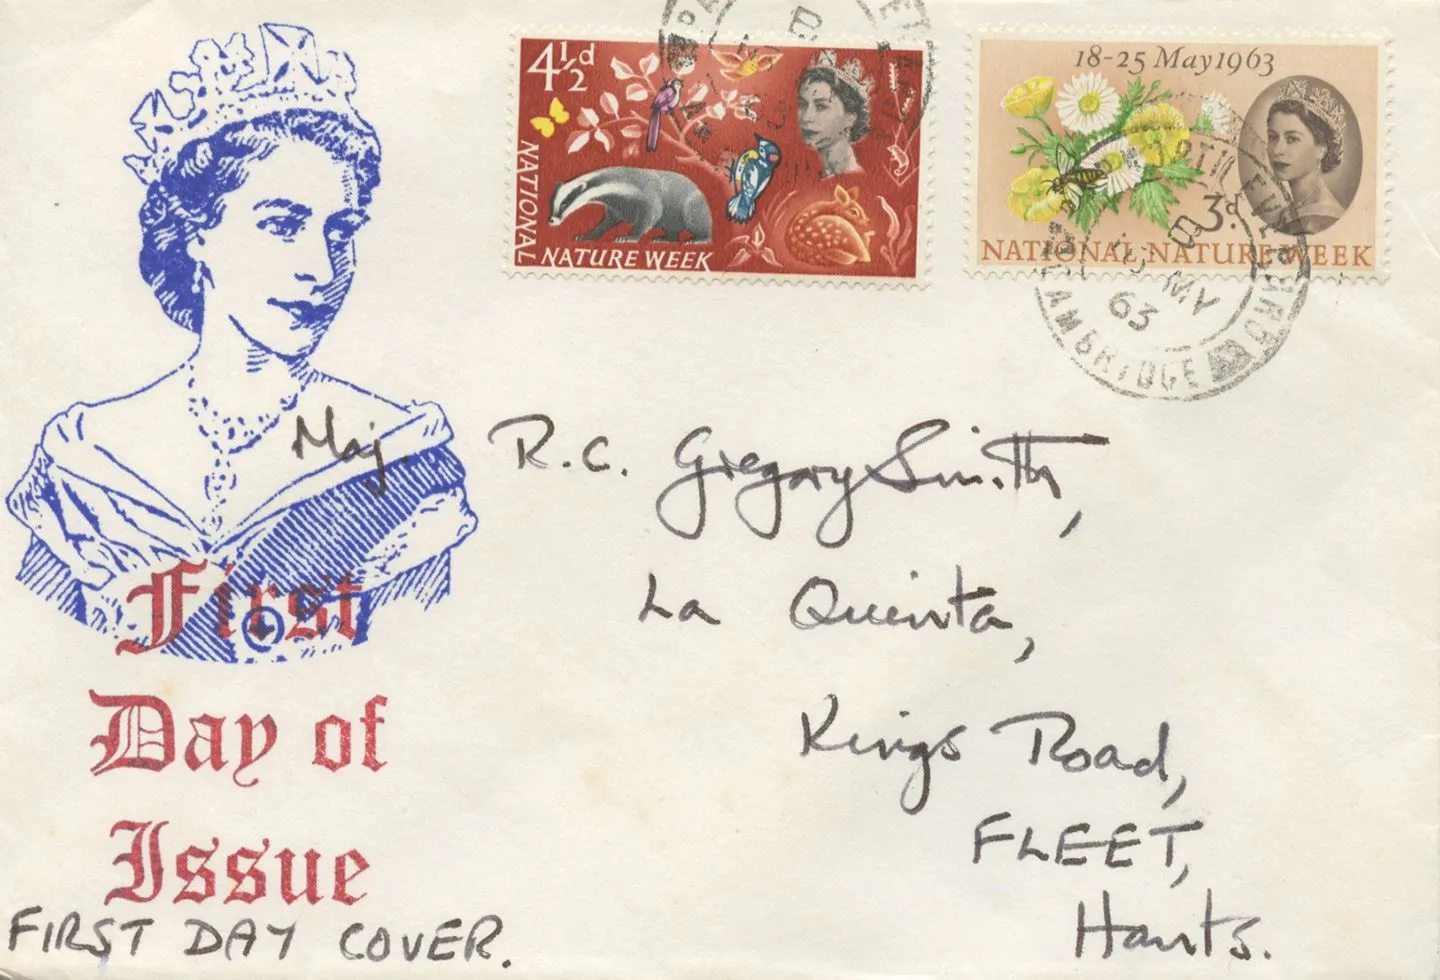 4½d
NATIONAL
NATURE WEEK
18-25 May 1963
3d
NATIONAL NATURE WEEK
MY
63
CAMBRIDGE
Maj. R.C. Gregory Smith,
La Quinta,
Kings Road,
FLEET,
Hants.
First
Day of
Issue
FIRST DAY COVER.